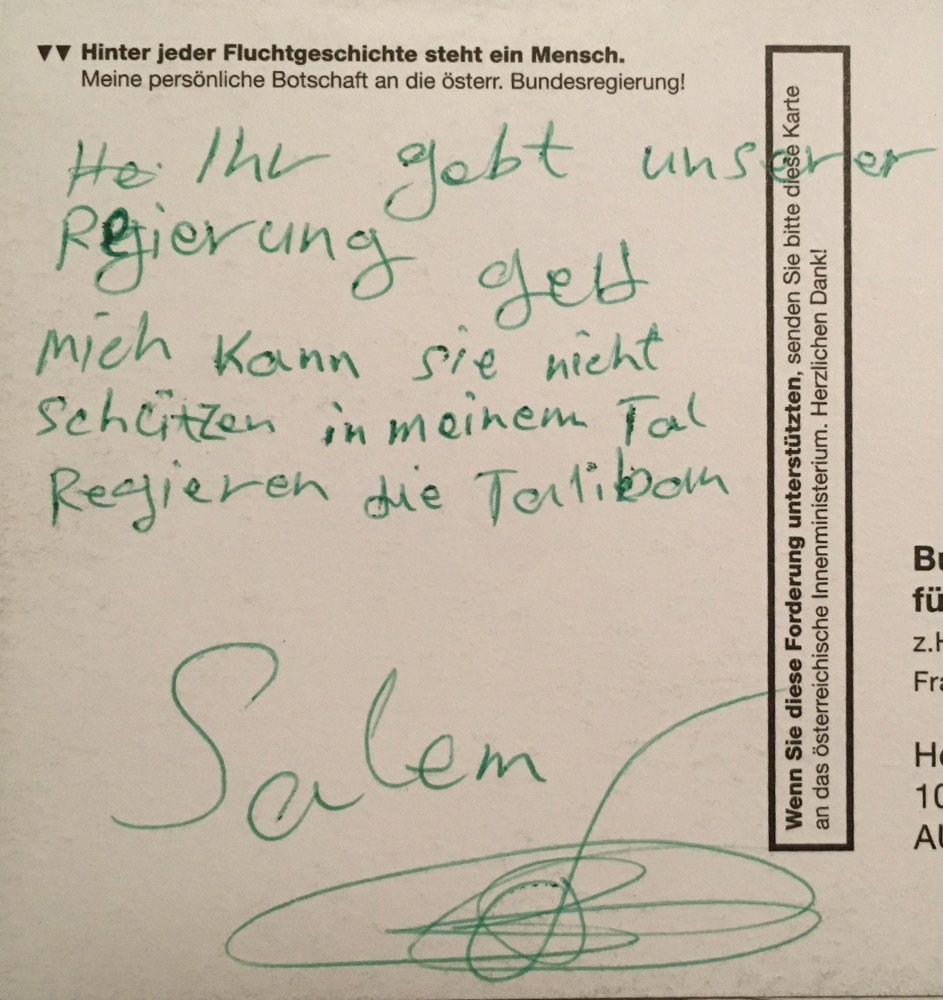 ▼▼ Hinter jeder Fluchtgeschichte steht ein Mensch.
Meine persönliche Botschaft an die österr. Bundesregierung!
He Ihr gebt unserer
Regierung geld
Mich kann sie nicht
Schützen in meinem Tal
Regieren die Taliban
Salem
Wenn Sie diese Forderung unterstützten, senden Sie bitte diese Karte
an das österreichische Innenministerium. Herzlichen Dank!
Bu
fü
z.H
Fra
He
10
AU